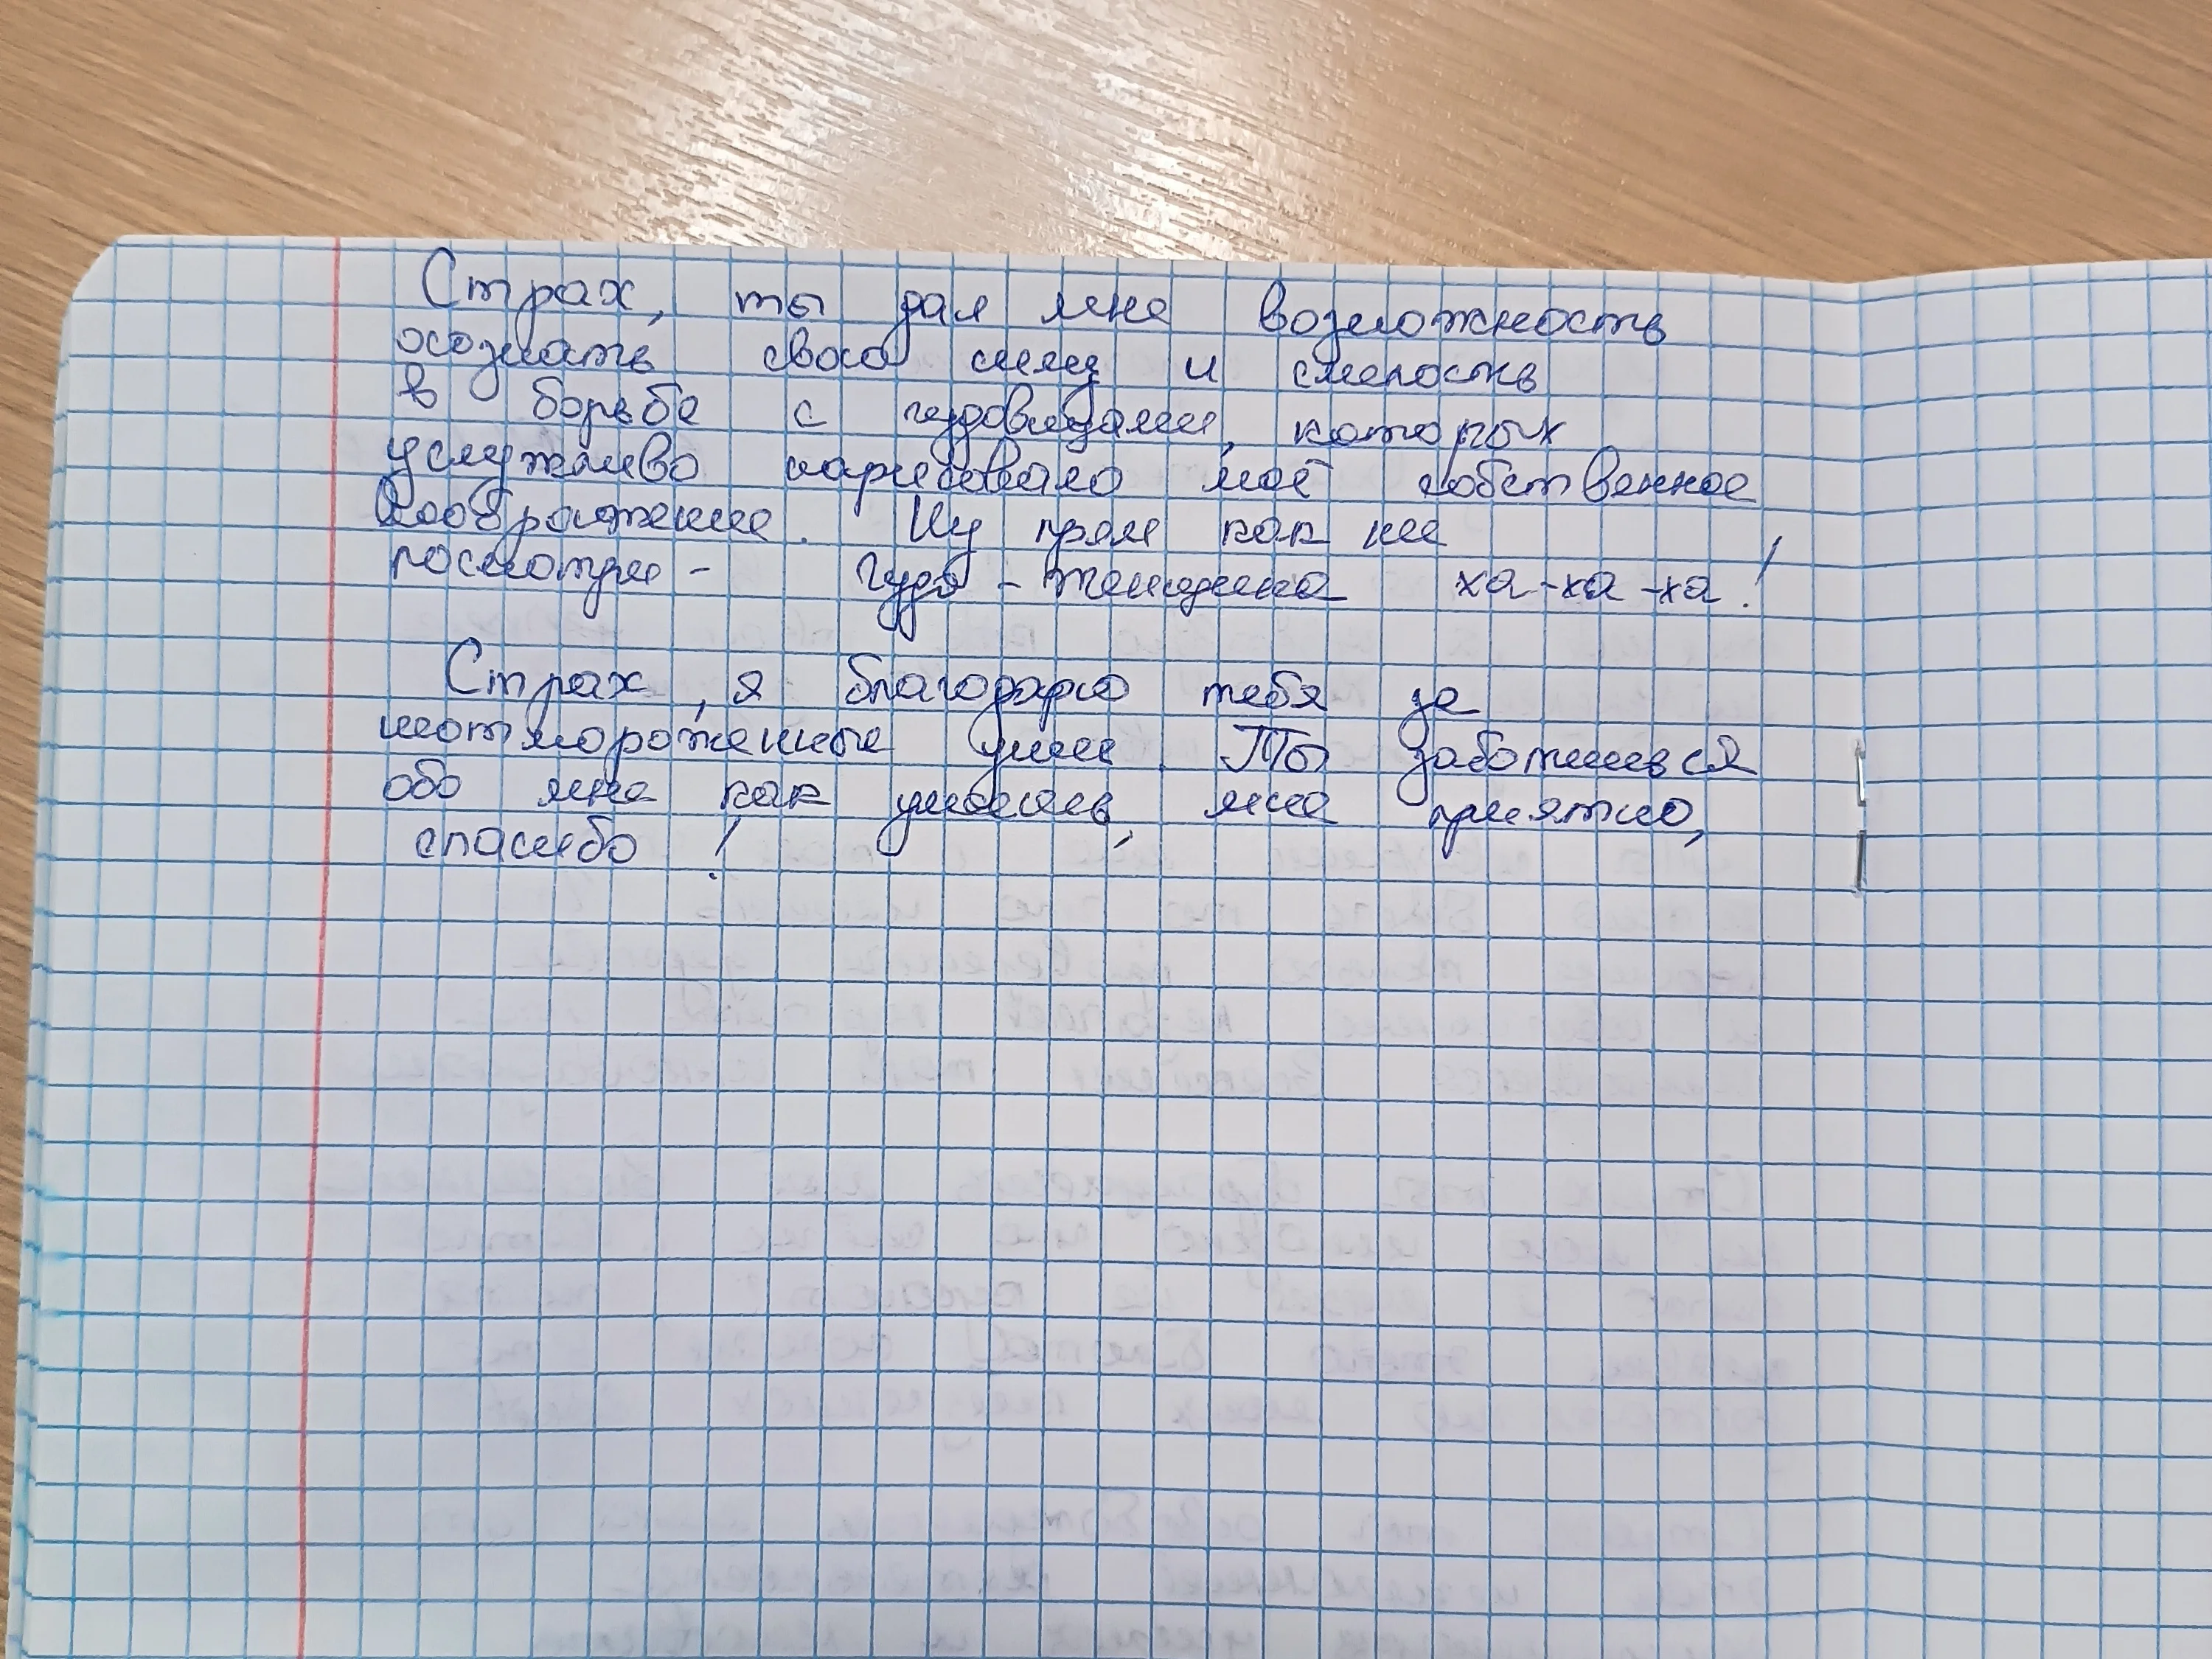 Страх, ты дал мне возможность
осознать свою силу и смелость
в борьбе с чудовищами, которых
услужливо нарисовало моё собственное
воображение. Ну прям как не
посмотри - чудо - женщина ха-ха-ха!
Страх, я благодарю тебя за
неотмороженные уши. Ты заботишься
обо мне как умеешь, мне приятно,
спасибо!